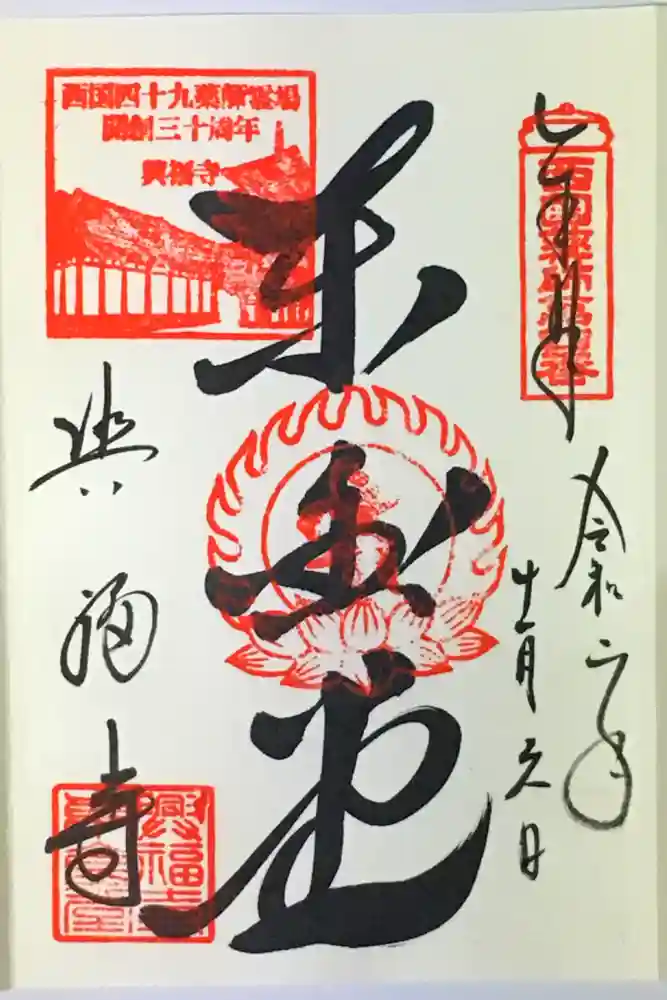 奉拝
西國薬師第四番
令和二年
十一月
日
東金堂
西国四十九薬師霊場
開創三十周年
興福寺
興福寺
興福寺